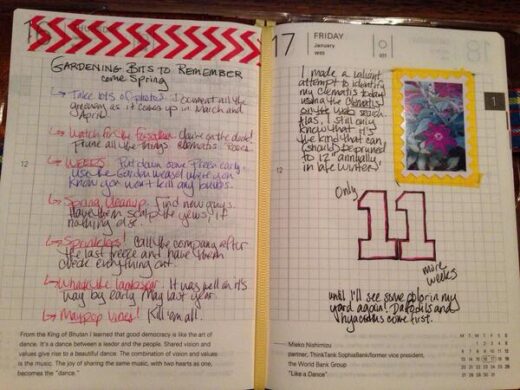 16
GARDENING BITS TO REMEMBER
come Spring
Take lots of photos! Document all the
greenery as it comes up in March and
April.
Watch for the forsythia.
Prune all the things. Clematis. Roses.
WEEDS. Put down some Preen early.
Use the Garden weasel where you
know you won't kill any bulbs.
Spring Cleanup. Find new guys.
Have them scalp the yews, if
nothing else.
Sprinklers! Call the company after
the last freeze and have them
check everything out.
It was well on it's
way by early May last year.
Maypop Vines! Kill 'em all.
12
From the King of Bhutan I learned that good democracy is like the art of
dance. It's a dance between a leader and the people. Shared vision and
values give rise to a beautiful dance. The combination of vision and values
is the music. The joy of sharing the same music, with two hearts as one,
becomes the "dance."
17 FRIDAY
January
1
I made a valiant
attempt to identify
my Clematis today
using the Clematis
on the web search.
Alas, I still only
know that it's
the kind that can
(should) be pruned
to 12" annually
in late winter!
12
Only
11
more
weeks
until I'll see some color in my
yard again! Daffodils and
hyacinths come first.
Mieko Nishimizu
partner, ThinkTank SophiaBank/former vice president,
the World Bank Group
"Like a Dance"